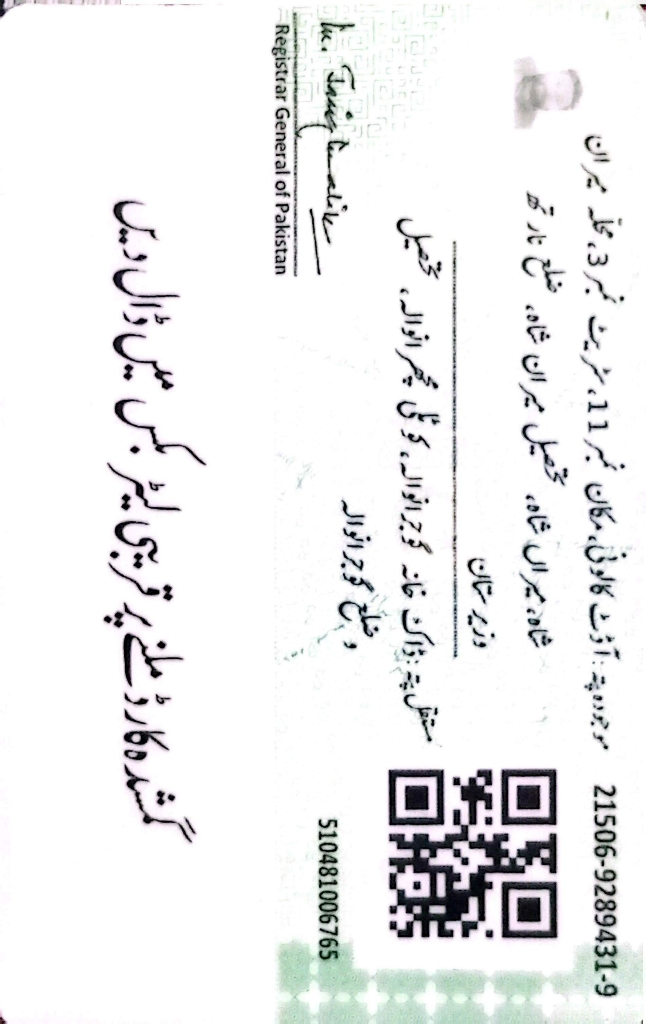 21506-9289431-9
موجودہ پتہ: آؤٹ کالونی، مکان نمبر 11، سٹریٹ نمبر 3، محلہ میران
شاہ، میران شاہ، تحصیل میران شاہ، ضلع نارتھ
وزیرستان
مستقل پتہ: ڈاک خانہ گوجرانوالہ، کوٹلی پھجرانوالہ، تحصیل
و ضلع گوجرانوالہ
510481006765
Registrar General of Pakistan
گمشدہ کارڈ ملنے پر قریبی لیٹر بکس میں ڈال دیں